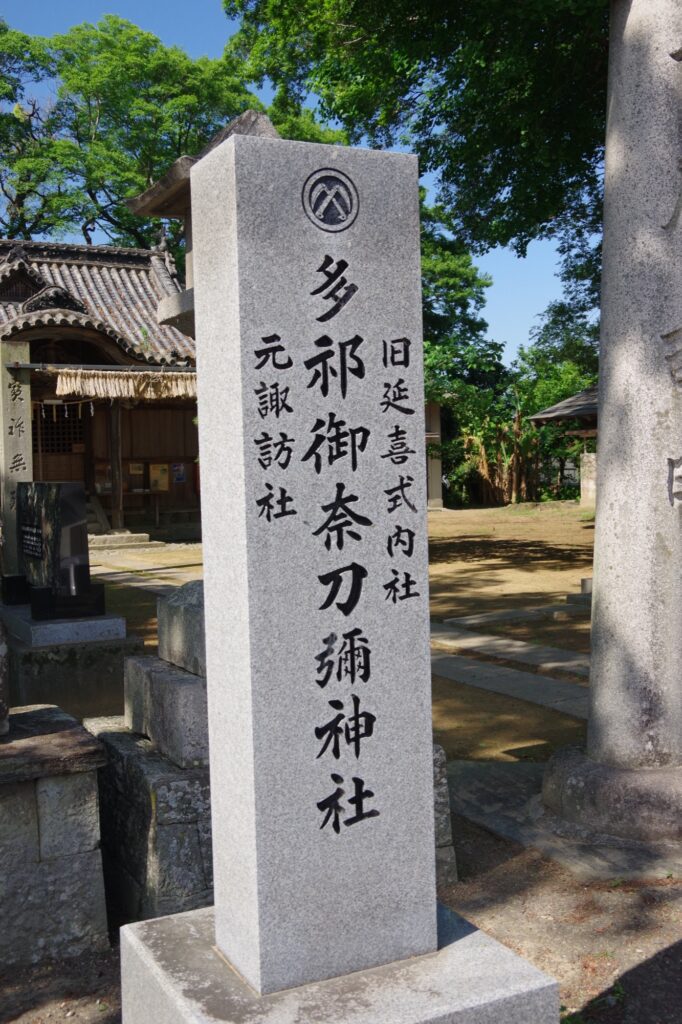 旧延喜式内社
多祁御奈刀彌神社
元諏訪社